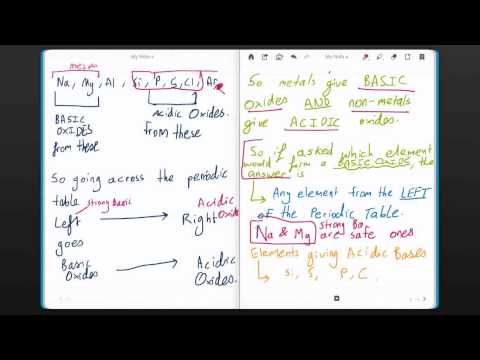 My Notes
metals
Na, Mg, Al, Si, P, S, Cl, Ar
BASIC
OXIDES
from these
Acidic Oxides.
from these
So going across the periodic
table
Strong Basic
Acidic
Oxides
Left → Right
goes
Basic
Oxides → Acidic
Oxides.
My Notes
So metals give BASIC
Oxides AND non-metals
give ACIDIC oxides.
So if asked which element
would form a BASIC OXIDE, the
answer is
Any element from the LEFT
of the Periodic Table.
Na & Mg are safe ones
Strong
Elements giving Acidic Bases
Si, S, P, C.